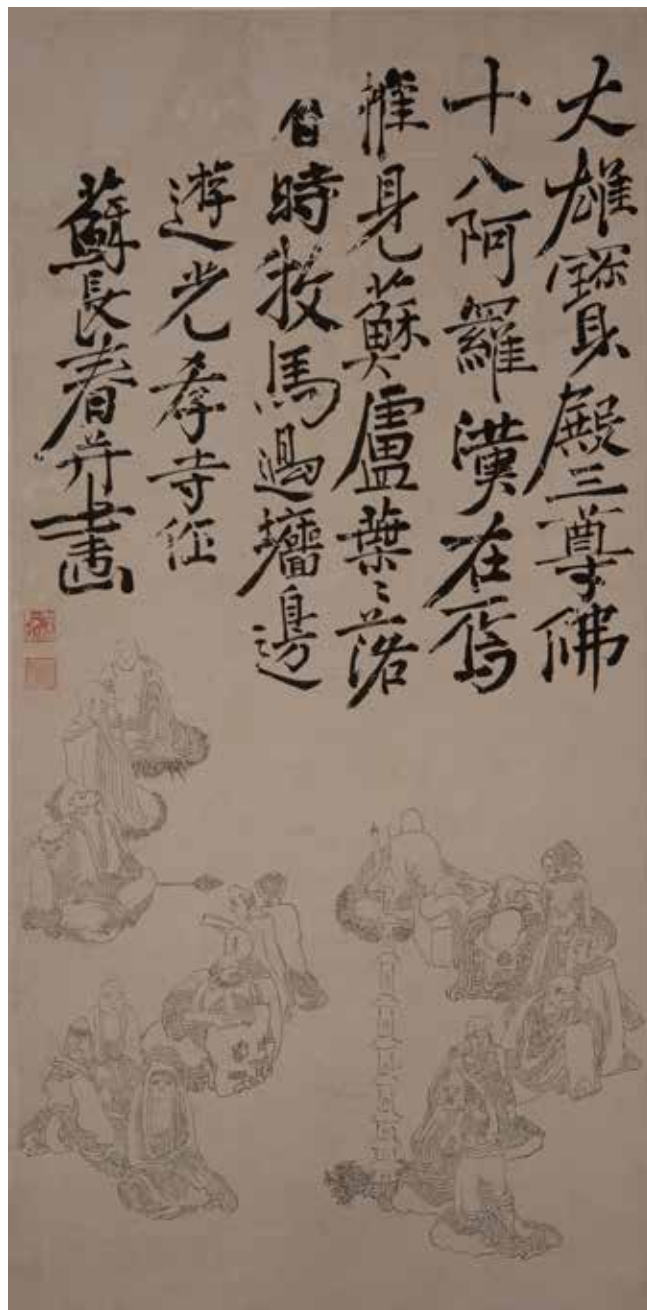 大雄寶殿三尊佛
十八阿羅漢在焉
惟見盧葉〻落
昔時牧馬過牆邊
遊光孝寺作
蘇長春并畫